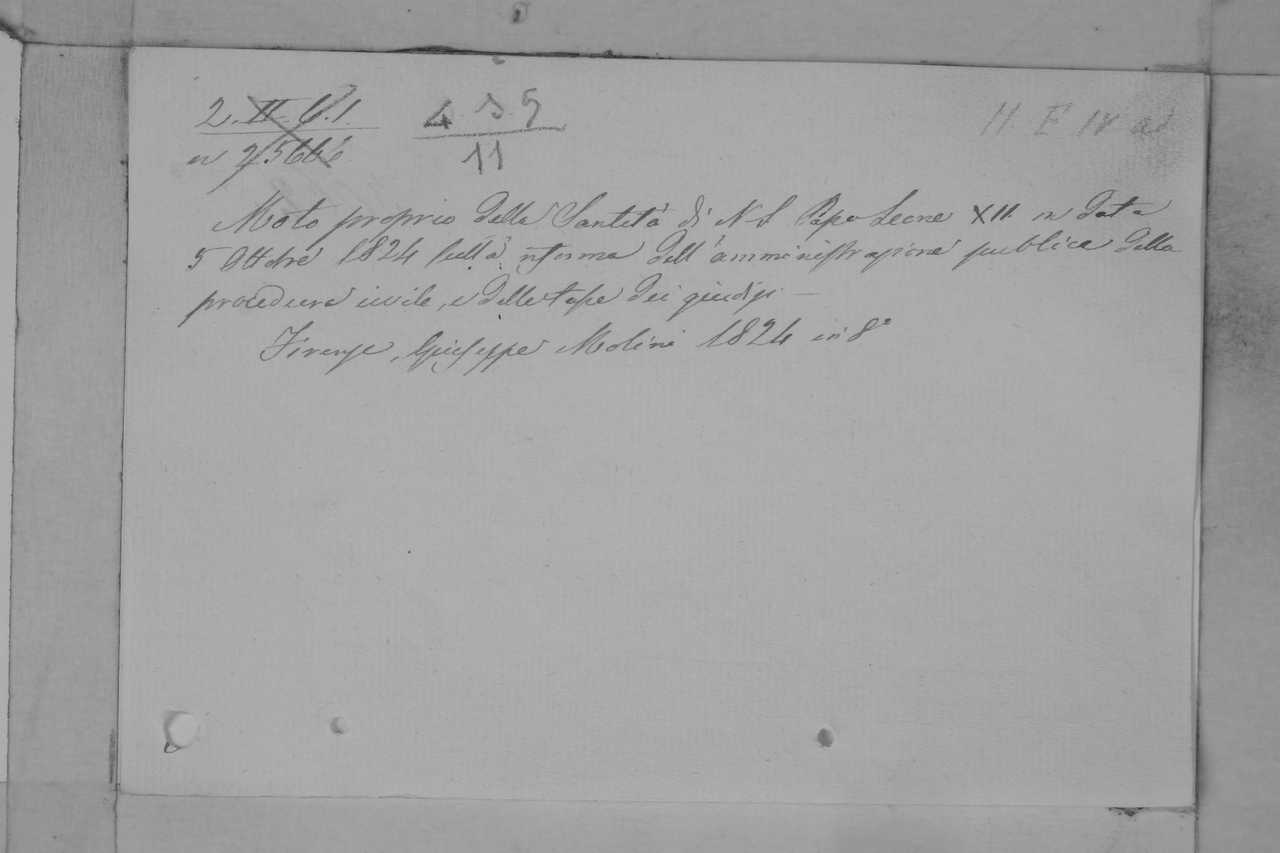 2. II. 6. 1. 4. 3. 5 11. E IV a
n 25646 11
Moto proprio della Santità di N. S. Papa Leone XII in data
5 Ottobre 1824 sulla riforma dell'amministrazione publica della
procedura civile, e delle tasse dei giudizi —
Firenze, Giuseppe Molini 1824 in 8°